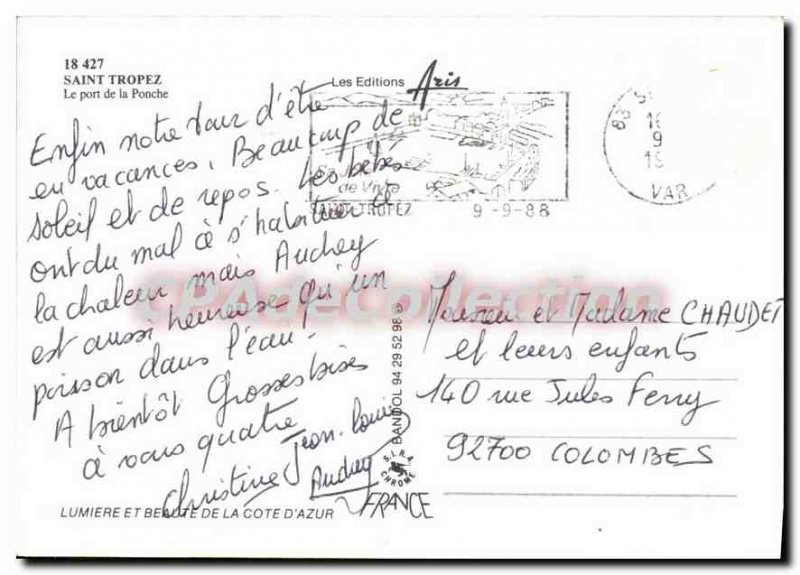 18 427
SAINT TROPEZ
Le port de la Ponche
Les Editions Aris
Enfin notre tour d'être
en vacances. Beaucoup de
soleil et de repos. Les bébés
ont du mal à s'habituer à
la chaleur mais Audrey
est aussi heureuse qu'un
poisson dans l'eau.
A bientôt Grosses bises
à vous quatre
Christine Jean-Louis
Audrey
SAINT-TROPEZ
9-9-88
83
VAR
CPAdeCollection
BANDOL 94 29 52 98 ®
S.I.R.A.
CHROME
Monsieur et Madame CHAUDET
et leurs enfants
140 rue Jules Ferry
92700 COLOMBES
FRANCE
LUMIERE ET BEAUTE DE LA COTE D'AZUR